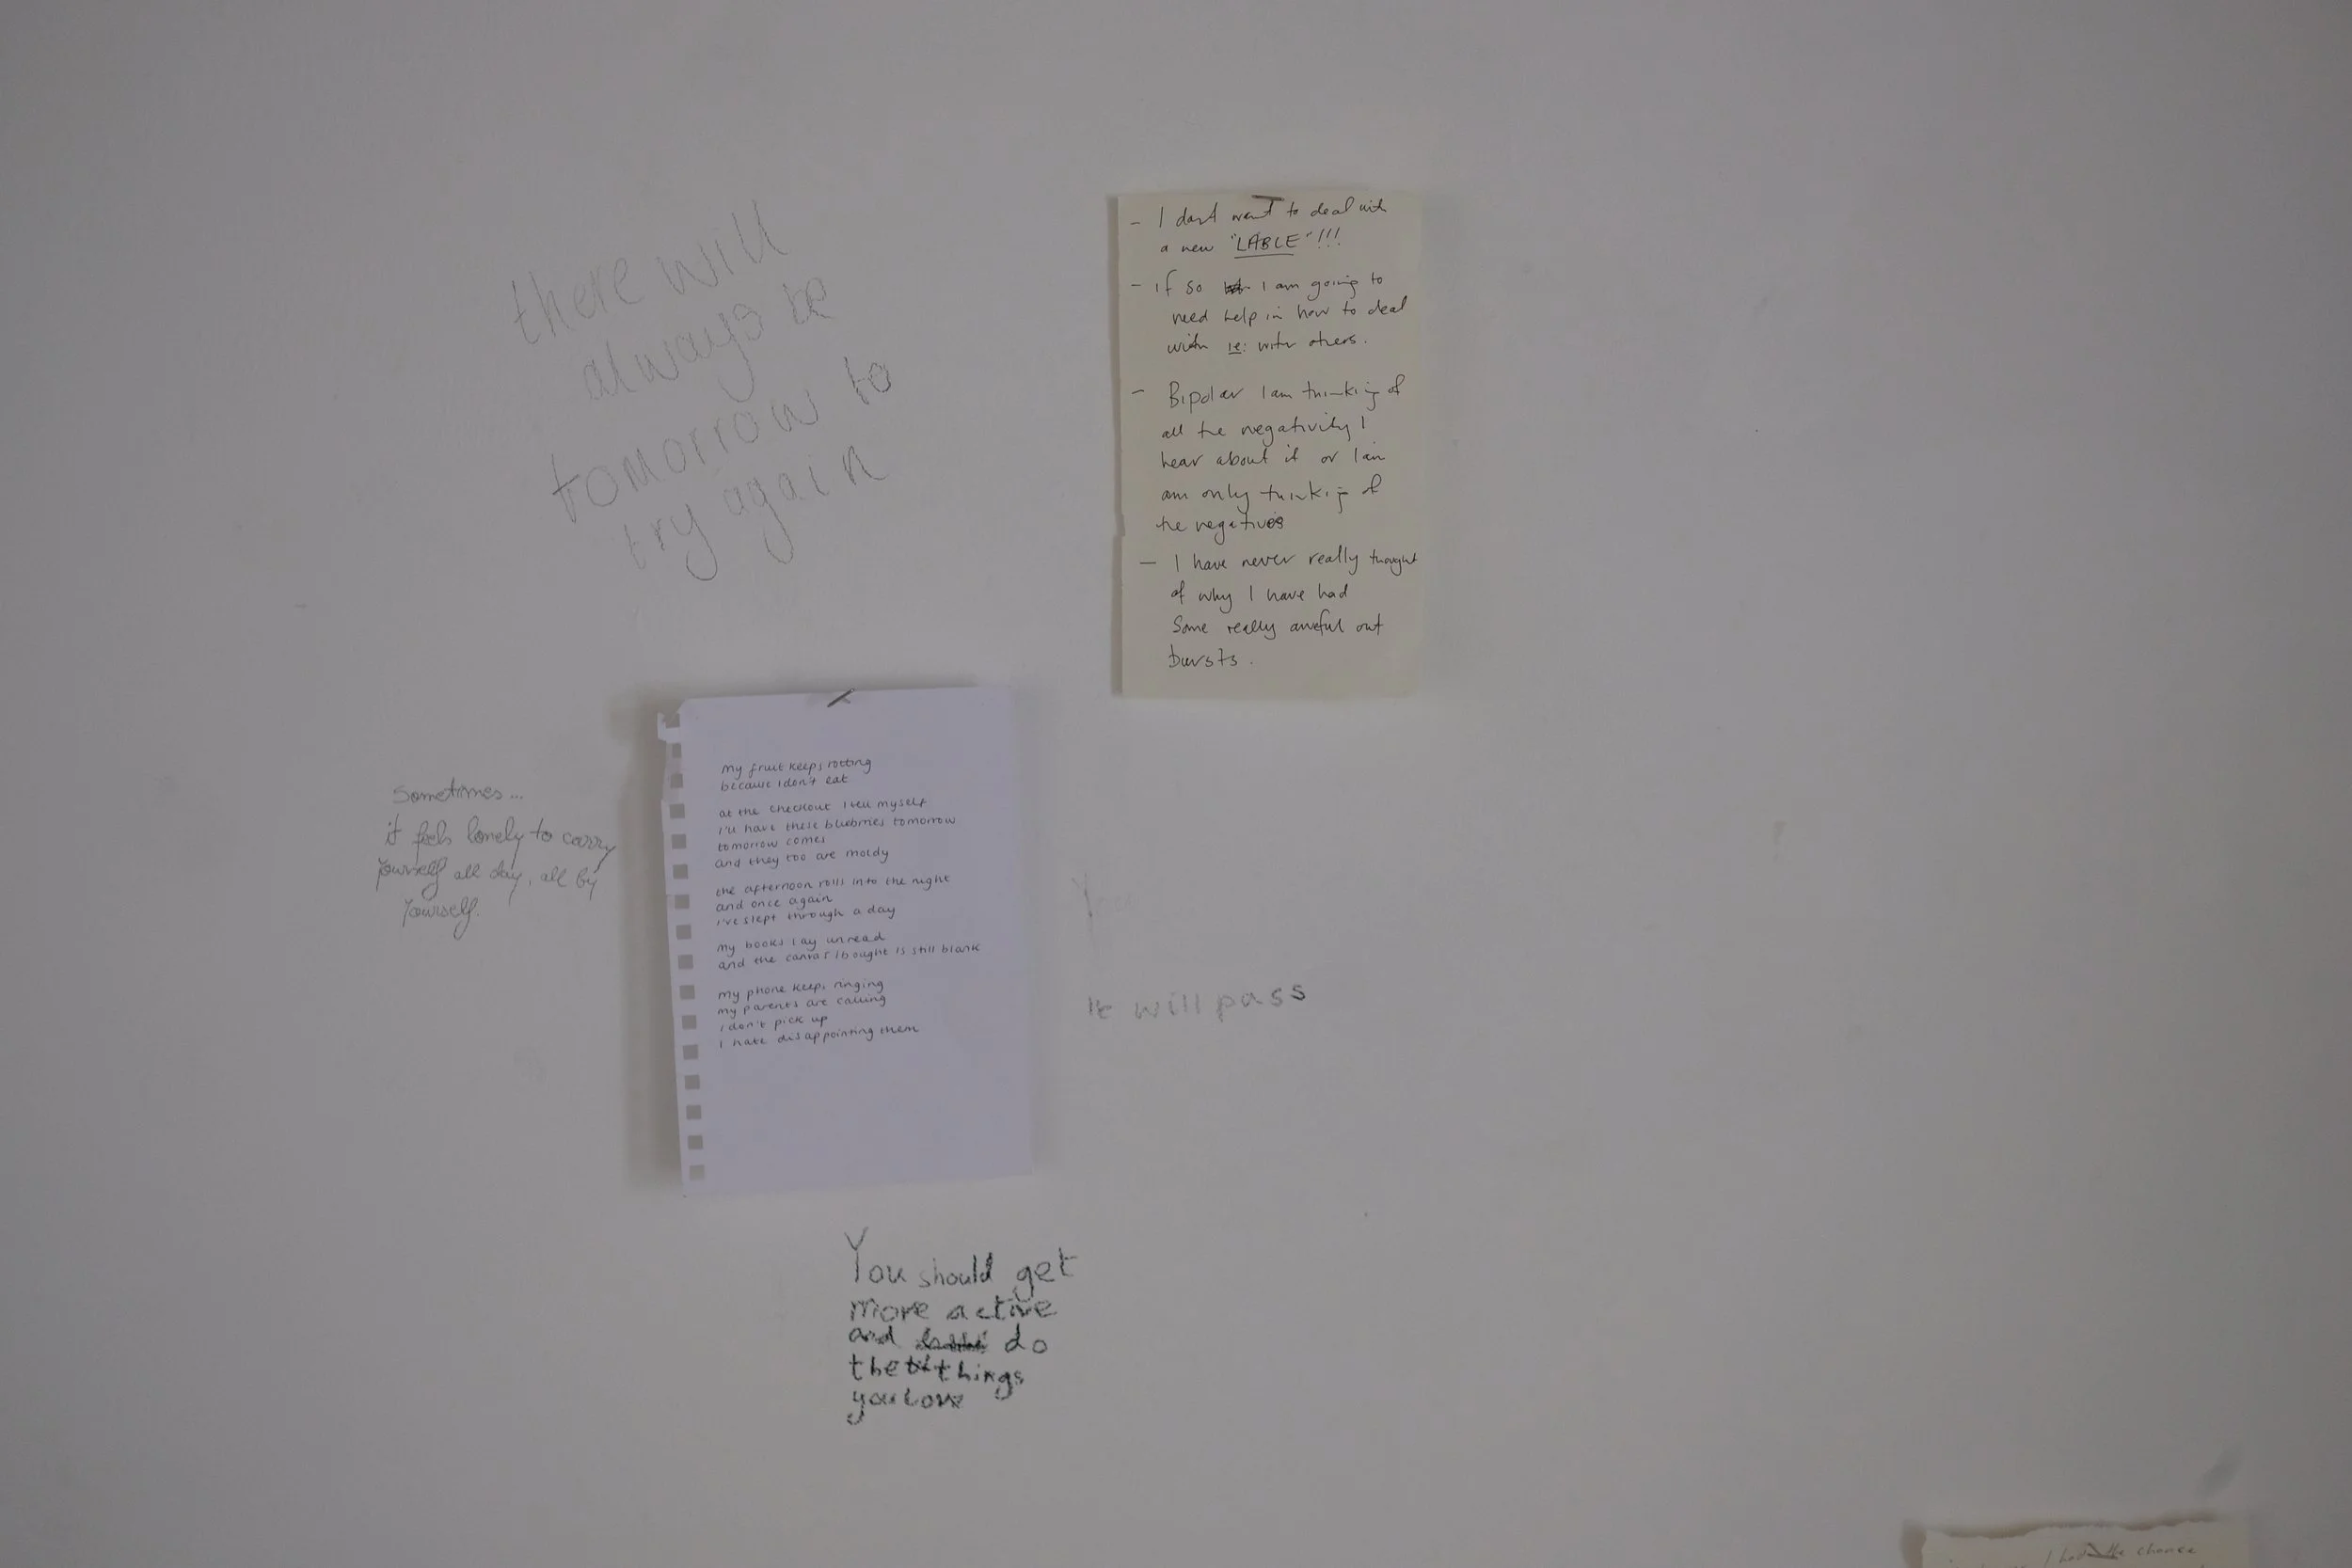 there will
always be
tomorrow to
try again
- I dont want to deal with
a new "LABLE"!!!
- if so I am going to
need help in how to deal
with ie: with others.
- Bipolar I am thinking of
all the negativity I
hear about it or I am
am only thinking of
the negatives
- I have never really thought
of why I have had
Some really aweful out
bursts.
Sometimes...
it feels lonely to carry
yourself all day, all by
yourself.
My fruit keeps rotting
because i don't eat
at the checkout I tell myself
i'll have these blueberries tomorrow
tomorrow comes
and they too are moldy
the afternoon rolls into the night
and once again
i've slept through a day
my books lay unread
and the canvas i bought is still blank
my phone keeps ringing
my parents are calling
i don't pick up
I hate disappointing them
You
It will pass
You should get
more active
and do
the things
you Love
I had the chance